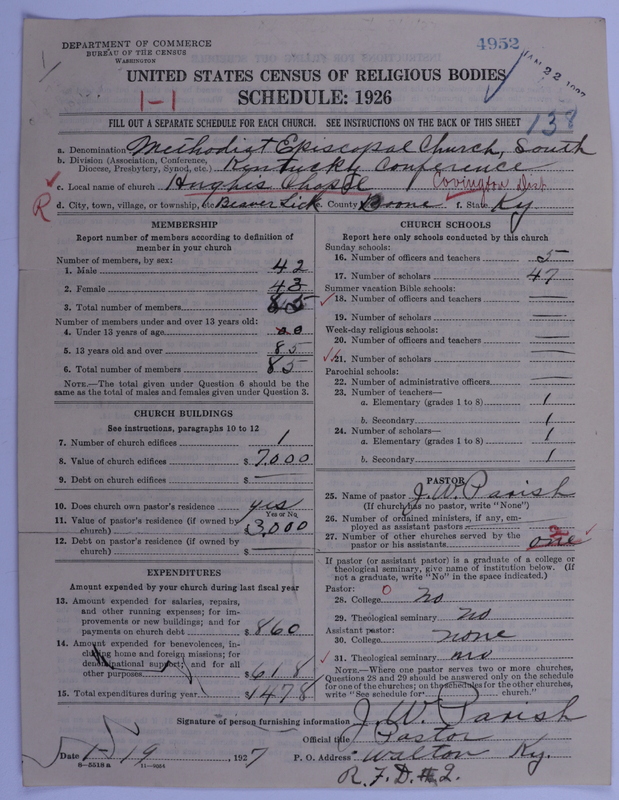 DEPARTMENT OF COMMERCE
BUREAU OF THE CENSUS
WASHINGTON
4952
JAN 22
UNITED STATES CENSUS OF RELIGIOUS BODIES
1-1
SCHEDULE: 1926
FILL OUT A SEPARATE SCHEDULE FOR EACH CHURCH. SEE INSTRUCTIONS ON THE BACK OF THIS SHEET
138
a. Denomination Methodist Episcopal Church, South
b. Division (Association, Conference, Diocese, Presbytery, Synod, etc.) Kentucky Conference
c. Local name of church Hughes Chapel Covington Dist
R
d. City, town, village, or township, etc. Beaver Lick County Boone f. State Ky
MEMBERSHIP
Report number of members according to definition of
member in your church
Number of members, by sex:
1. Male 42
2. Female 43
3. Total number of members 85
Number of members under and over 13 years old:
4. Under 13 years of age 00
5. 13 years old and over 85
6. Total number of members 85
NOTE.—The total given under Question 6 should be
same as the total of males and females given under Question 3.
CHURCH BUILDINGS
See instructions, paragraphs 10 to 12
7. Number of church edifices 1
8. Value of church edifices $ 7000
9. Debt on church edifices $ —
10. Does church own pastor's residence yes
Yes or No
11. Value of pastor's residence (if owned by
church) $ 3,000
12. Debt on pastor's residence (if owned by
church) $ —
EXPENDITURES
Amount expended by your church during last fiscal year
13. Amount expended for salaries, repairs,
and other running expenses; for im-
provements or new buildings; and for
payments on church debt $ 860
14. Amount expended for benevolences, in-
cluding home and foreign missions; for
denominational support; and for all
other purposes $ 618
15. Total expenditures during year $ 1478
CHURCH SCHOOLS
Report here only schools conducted by this church
Sunday schools:
16. Number of officers and teachers 5
17. Number of scholars 47
Summer vacation Bible schools:
18. Number of officers and teachers —
19. Number of scholars —
Week-day religious schools:
20. Number of officers and teachers —
21. Number of scholars —
Parochial schools:
22. Number of administrative officers —
23. Number of teachers—
a. Elementary (grades 1 to 8) 1
b. Secondary 1
24. Number of scholars—
a. Elementary (grades 1 to 8) 1
b. Secondary 1
PASTOR
25. Name of pastor J. W. Parish
(If church has no pastor, write "None")
26. Number of ordained ministers, if any, em-
ployed as assistant pastors —
27. Number of other churches served by the
pastor or his assistants one 2
If pastor (or assistant pastor) is a graduate of a college or
theological seminary, give name of institution below. (If
not a graduate, write "No" in the space indicated.)
Pastor: 0
28. College no
29. Theological seminary no
Assistant pastor:
30. College none
31. Theological seminary no
NOTE.—Where one pastor serves two or more churches,
Questions 28 and 29 should be answered only on the schedule
for one of the churches; on the schedules for the other churches,
write "See schedule for church."
Signature of person furnishing information J. W. Parish
Official title Pastor
Date 1-19, 1927 P. O. Address Walton Ky.
8-5518 a
R.F.D. # 2.